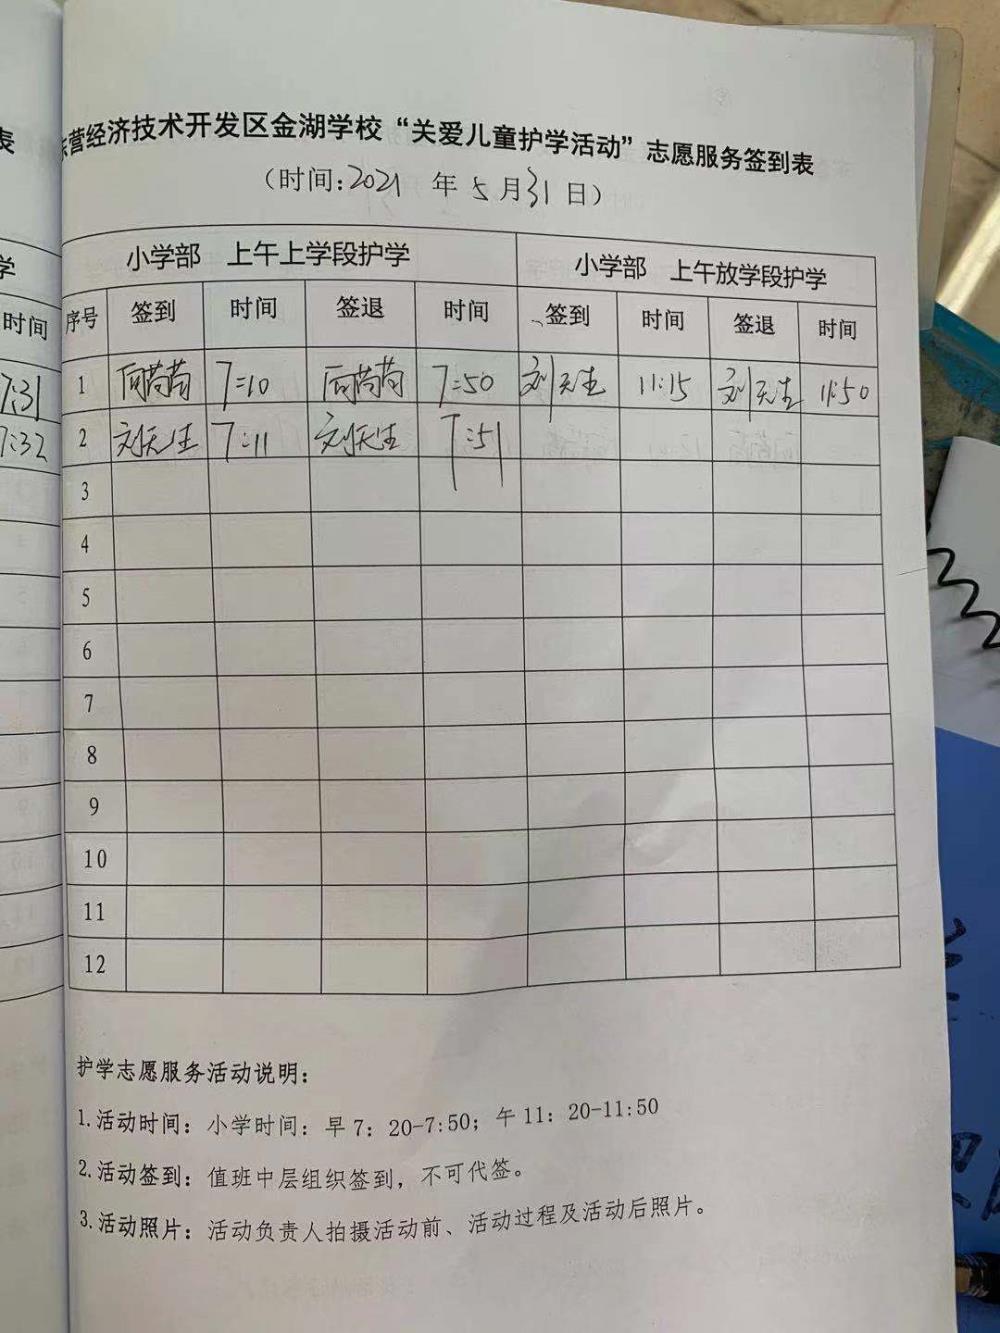 表
东营经济技术开发区金湖学校“关爱儿童护学活动”志愿服务签到表
（时间:2021 年 5 月 31 日）
学
小学部 上午上学段护学 小学部 上午放学段护学
时间
序号 签到 时间 签退 时间 签到 时间 签退 时间
7:31
1 7:10 7:50 刘天生 11:15 刘天生 11:50
7:32
2 刘天生 7:11 刘天生 7:51
3
4
5
6
7
8
9
10
11
12
护学志愿服务活动说明：
1.活动时间：小学时间：早 7：20-7:50；午 11：20-11:50
2.活动签到：值班中层组织签到，不可代签。
3.活动照片：活动负责人拍摄活动前、活动过程及活动后照片。